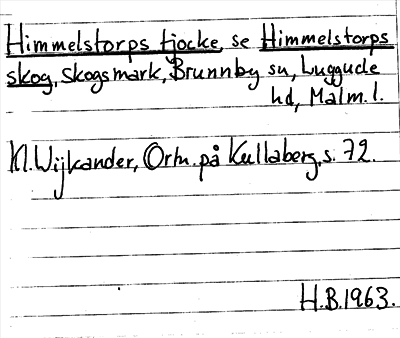 Himmelstorps tjocke, se Himmelstorps
skog, skogsmark, Brunnby sn, Luggude
hd, Malm. l.
Kl. Wijkander, Ortn. på Kullaberg, s. 72.
H.B. 1963.